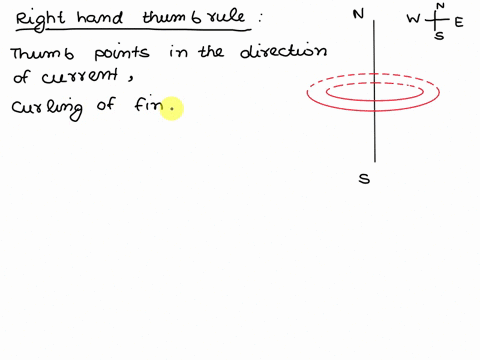 Right hand thumb rule :
Thumb points in the direction
of current,
curling of fin
N
S
N
W E
S